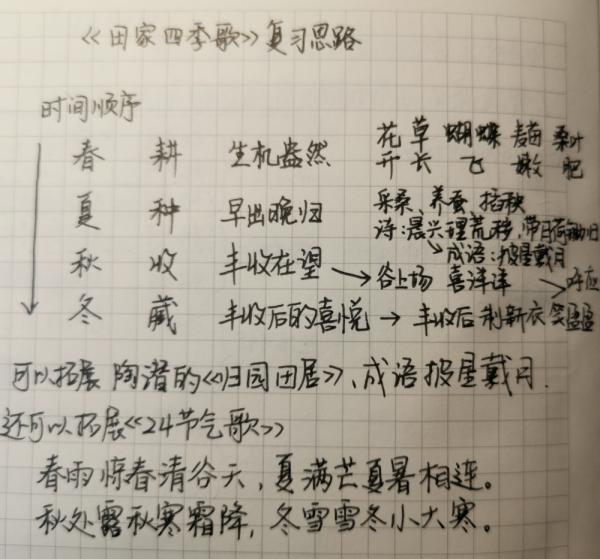 《田家四季歌》复习思路
时间顺序
春 耕 生机盎然 花 草 蝴蝶 麦苗 桑叶
开 长 飞 嫩 肥
夏 种 早出晚归 采桑、养蚕、插秧
诗:晨兴理荒秽,带月荷锄归
→成语:披星戴月
秋 收 丰收在望 → 谷上场 喜洋洋 呼应
冬 藏 丰收后的喜悦 → 丰收后 制新衣 笑盈盈
可以拓展 陶潜的《归园田居》,成语披星戴月.
还可以拓展《24节气歌》
春雨惊春清谷天,夏满芒夏暑相连。
秋处露秋寒霜降,冬雪雪冬小大寒。